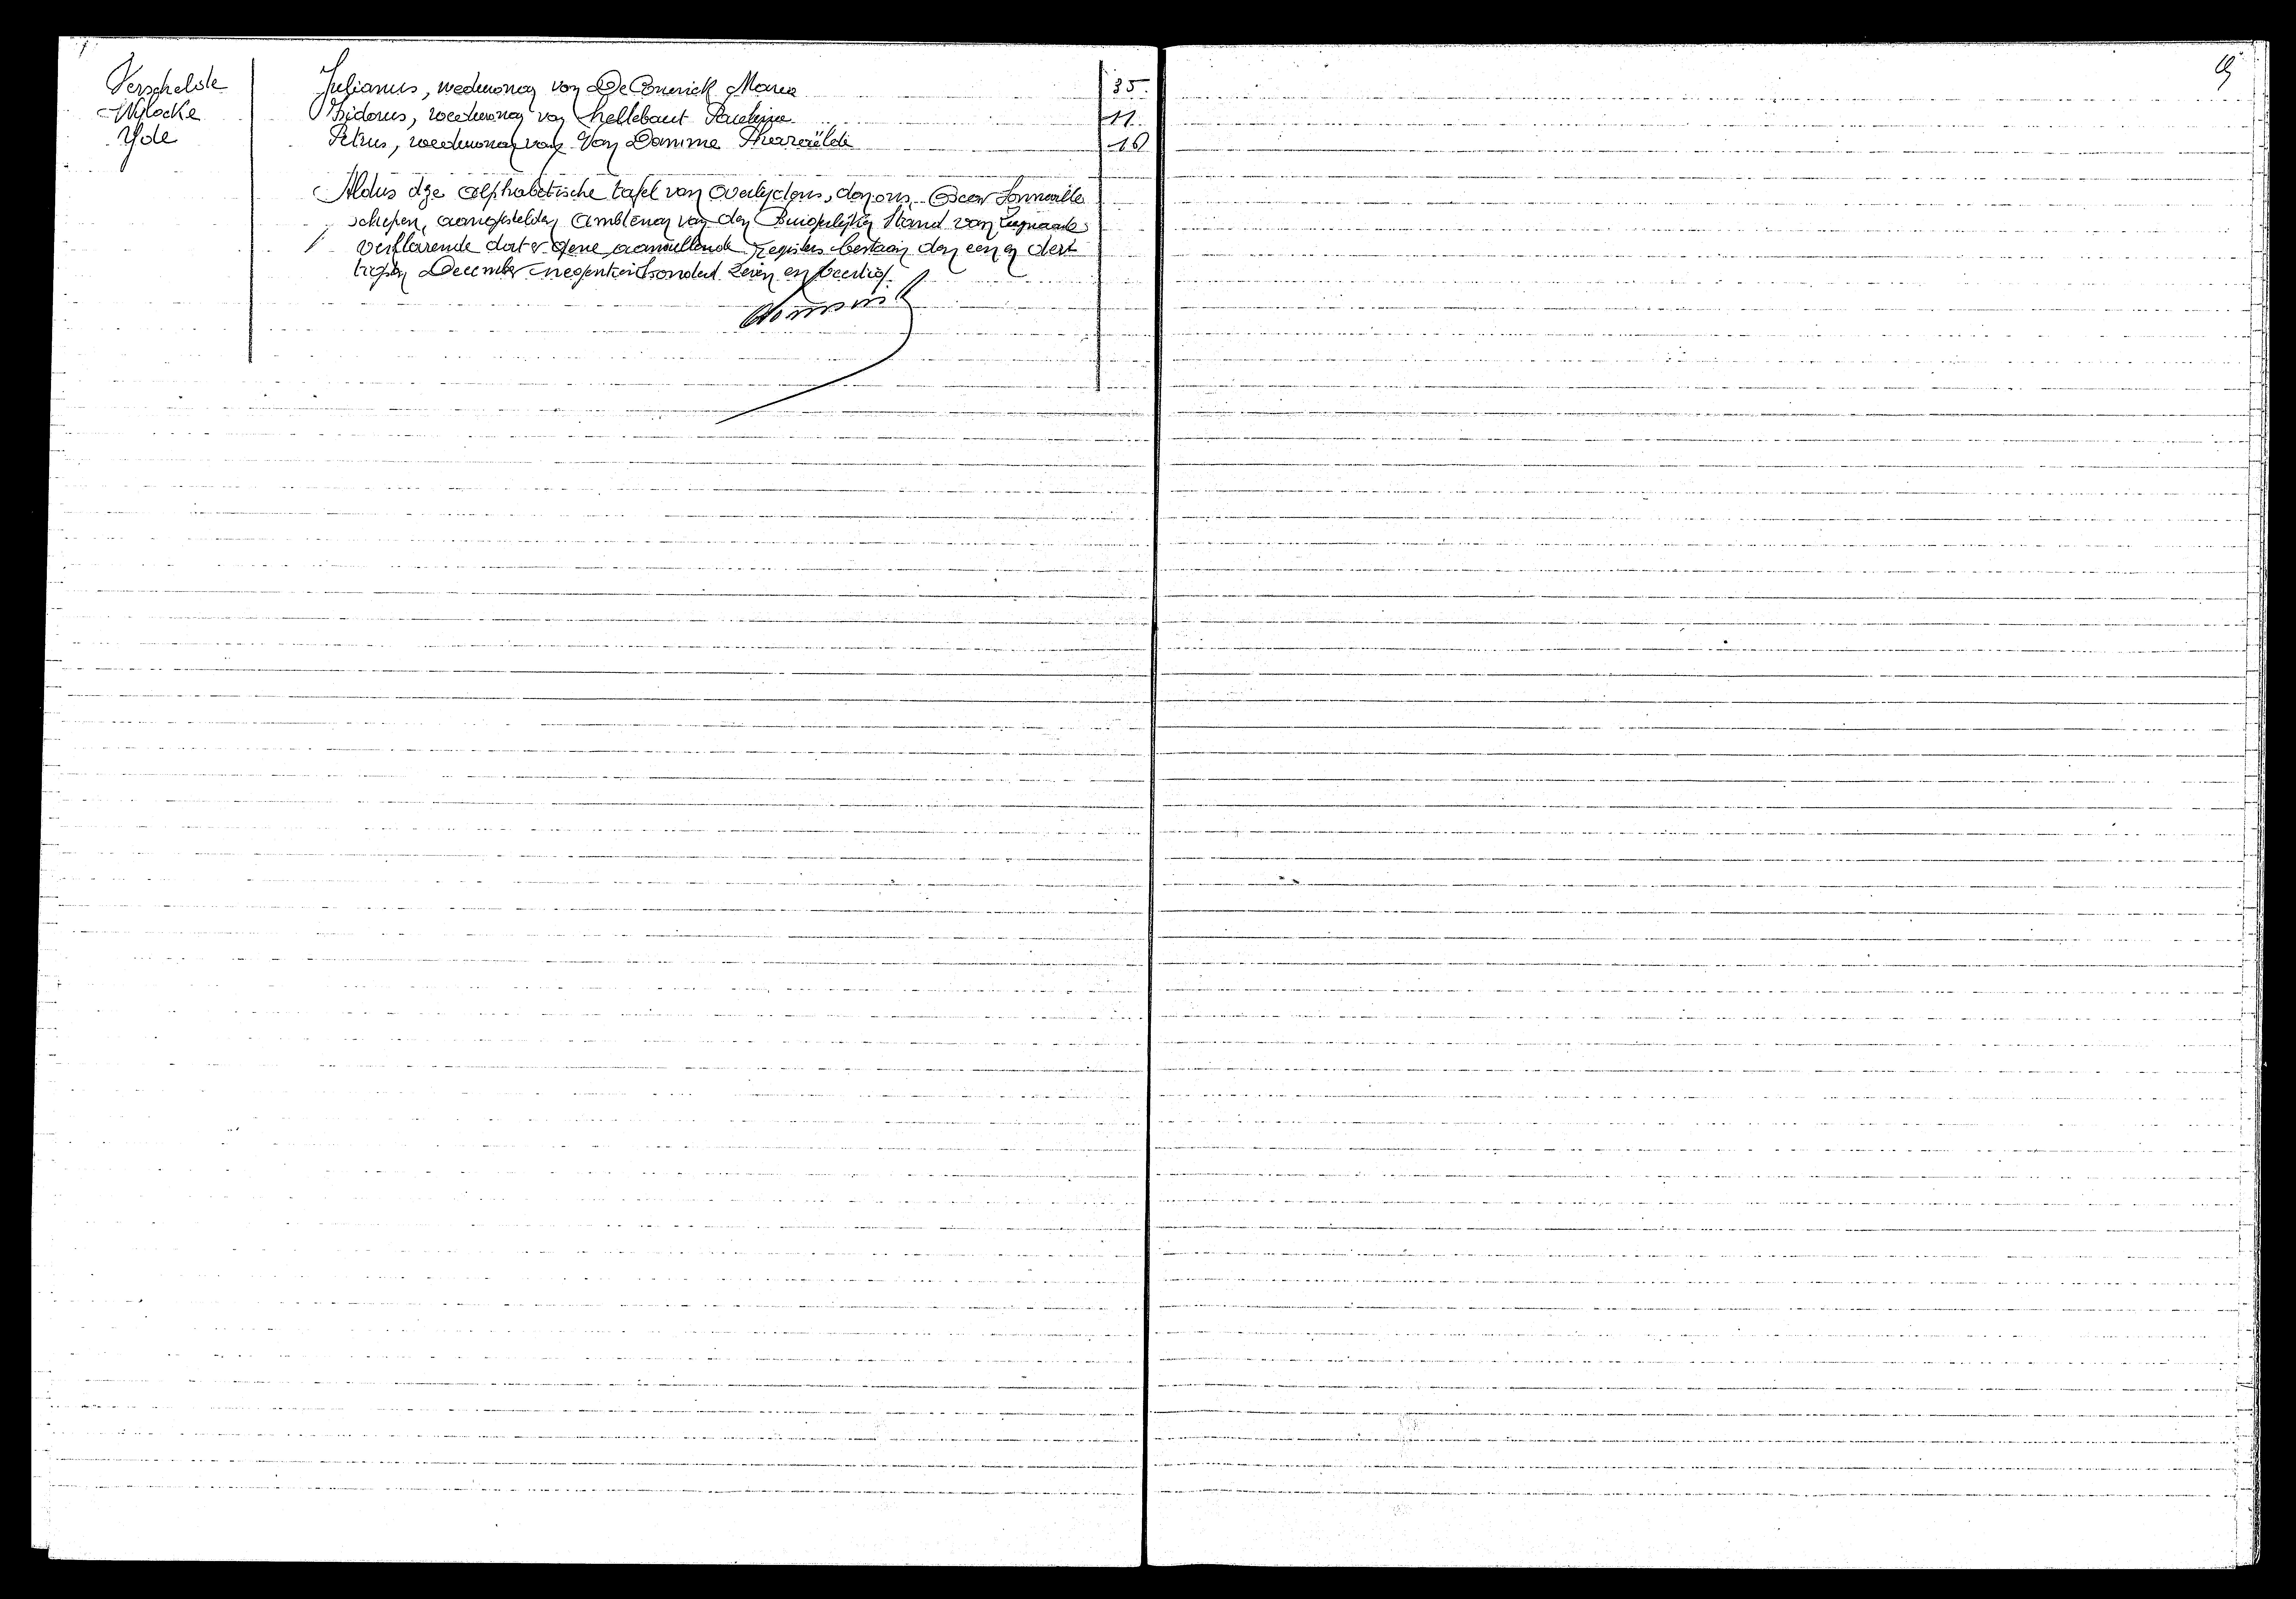 Verschelde Julianus, weduwnaar van De Coninck Maria 35.
Wylocke Isidorus, weduwnaar van Hellebaut Paulina 11.
Yde Petrus, weduwnaar van Van Damme 10
Aldus dze alphabetische tafel van Overlydens, door ons, Oscar Sonneville
schepen, aangestelden Ambtenaar van den Burgerlijken Stand van
verklarende dat er gene aanvullende registers bestaan den een en dert
tigsten December negentienhonderd zeven en veertig.